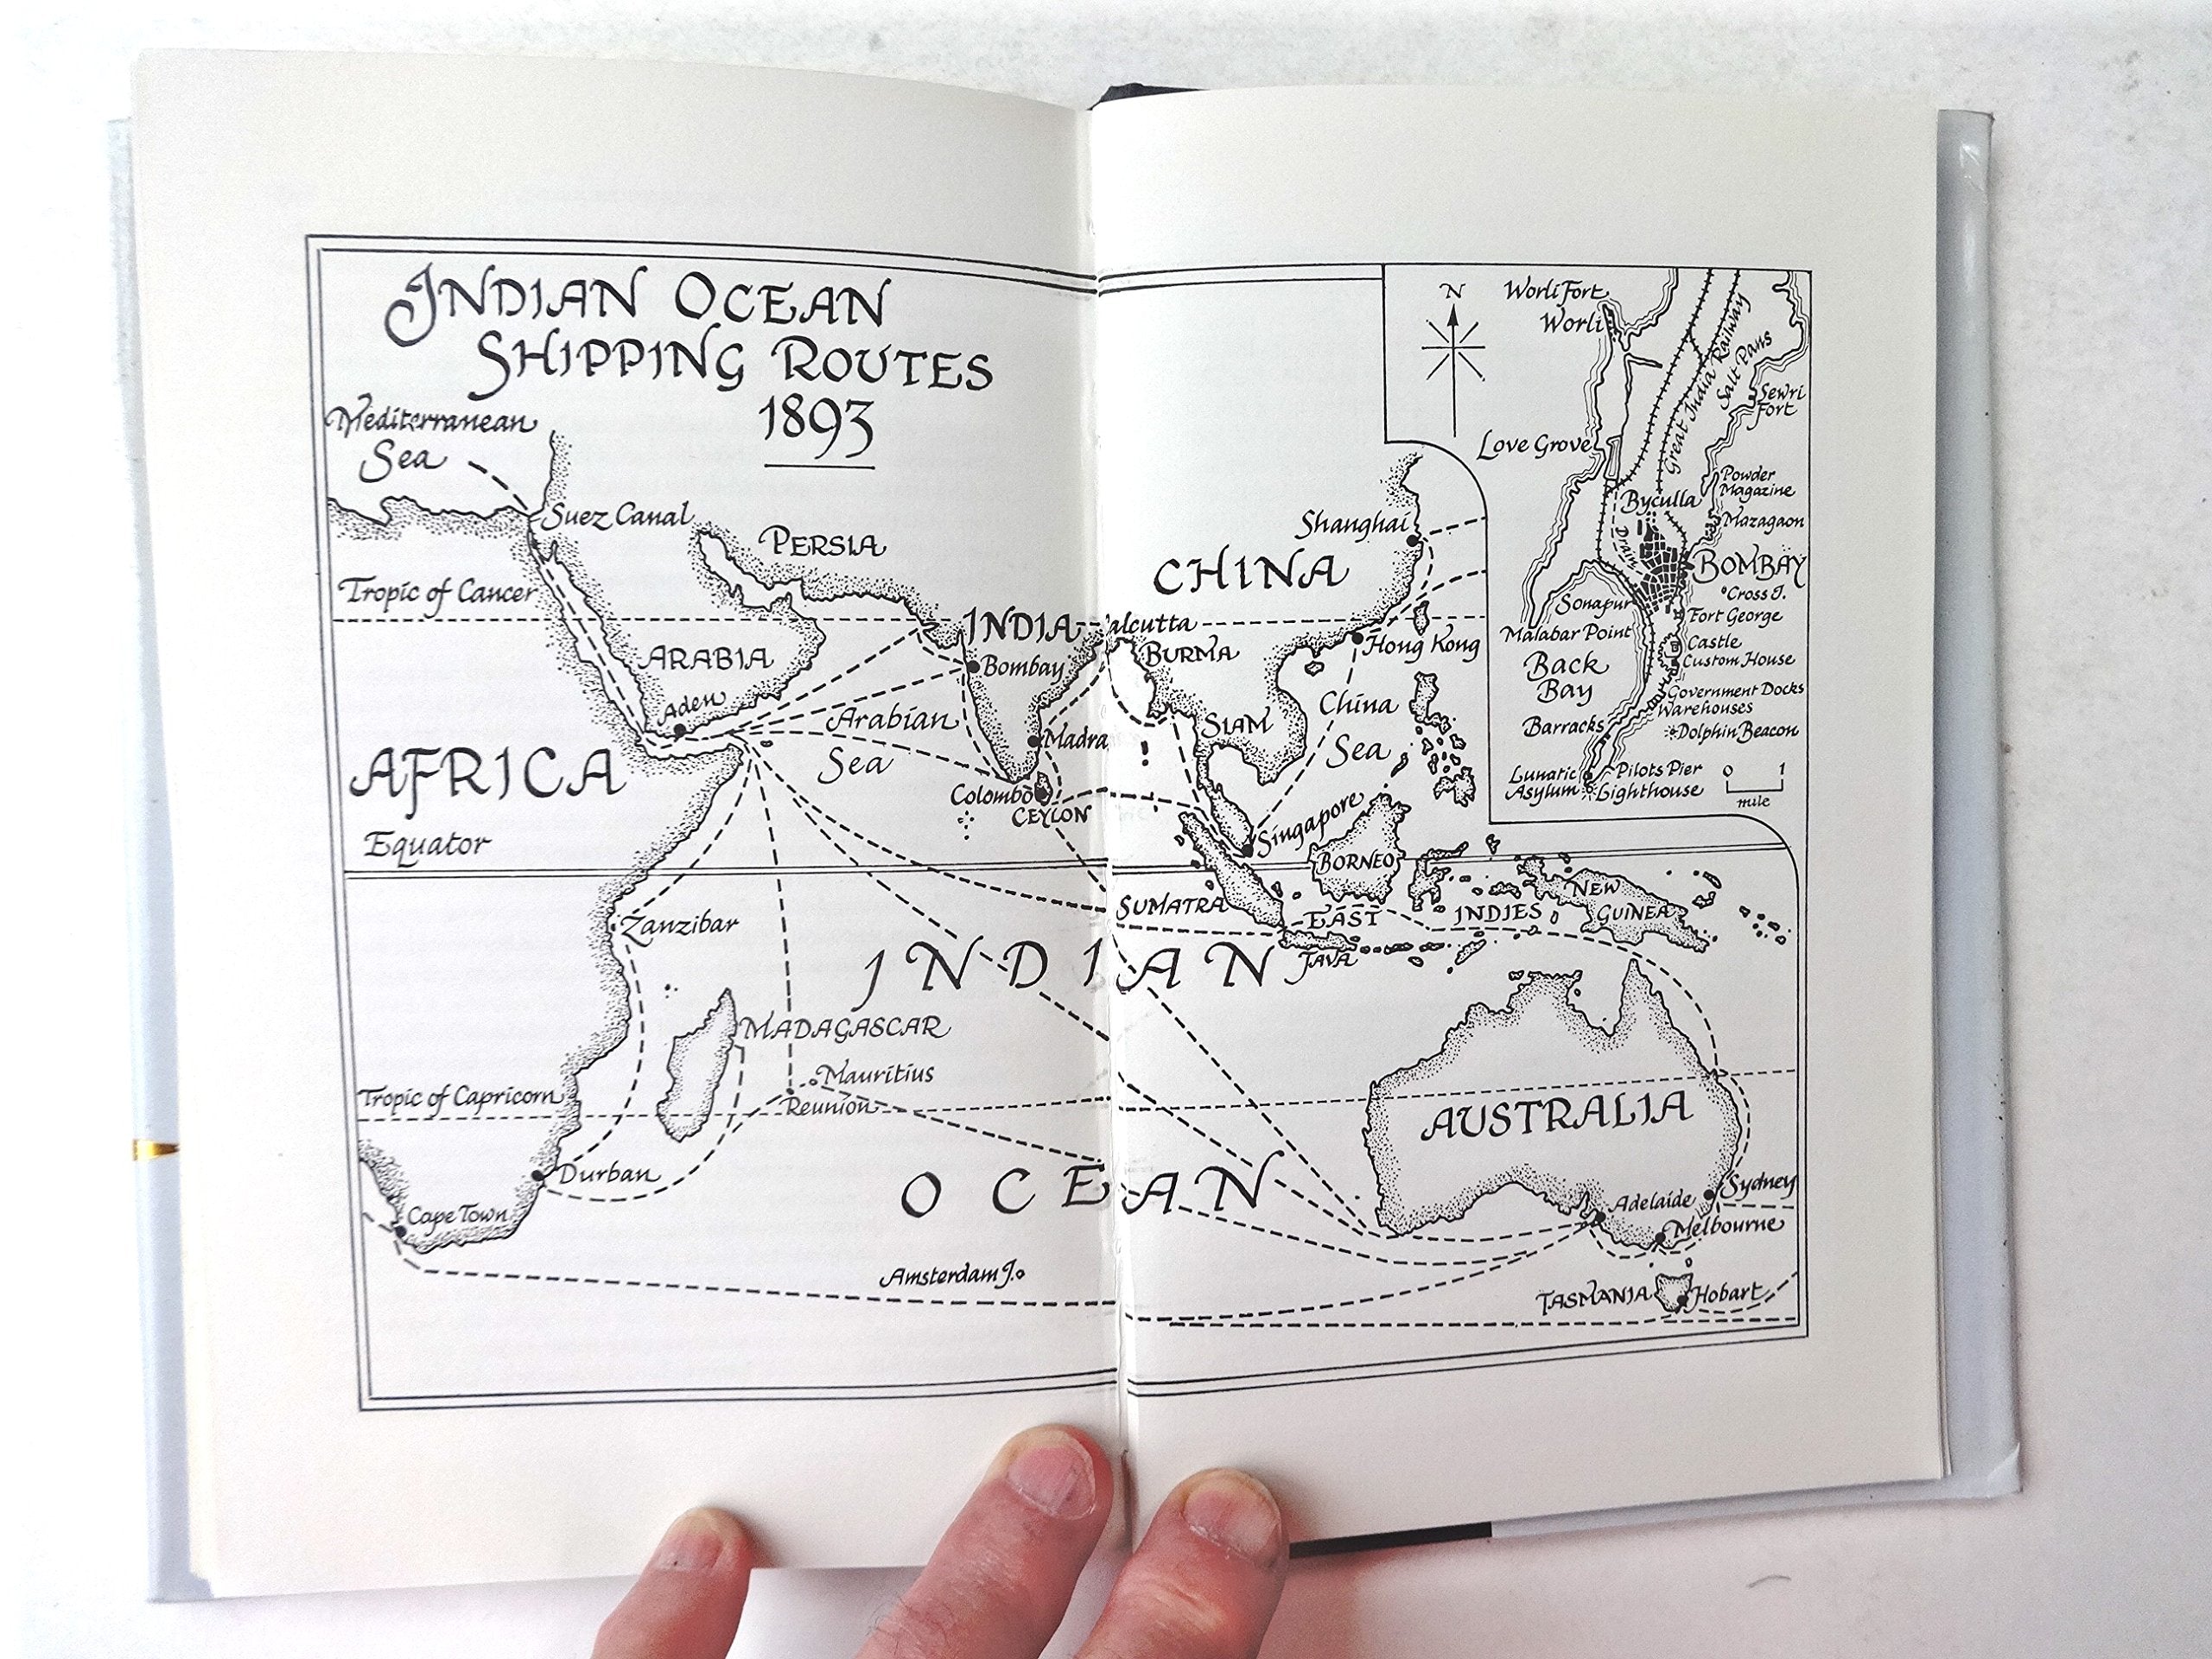 INDIAN OCEAN
SHIPPING ROUTES
1893
Mediterranean
Sea
Suez Canal
PERSIA
Tropic of Cancer
ARABIA
Aden
INDIA
Bombay
Arabian
Sea
Madra
Colombo
CEYLON
AFRICA
Equator
Zanzibar
MADAGASCAR
Mauritius
Reunion
Tropic of Capricorn
Durban
Cape Town
Amsterdam I.
INDIAN
OCEAN
Shanghai
CHINA
alcutta
BURMA
Hong Kong
SIAM
China
Sea
Singapore
BORNEO
SUMATRA
EAST INDIES
JAVA
NEW
GUINEA
AUSTRALIA
Adelaide
Sydney
Melbourne
TASMANIA
Hobart
N
Worli Fort
Worli
Great India Railway
Salt Pans
Sewri
Fort
Love Grove
Powder
Magazine
Byculla
Mazagaon
Drain
BOMBAY
Cross I.
Sonapur
Fort George
Malabar Point
Castle
Custom House
Back
Bay
Government Docks
Warehouses
Barracks
Dolphin Beacon
Lunatic
Asylum
Pilots Pier
Lighthouse
0 1
mile